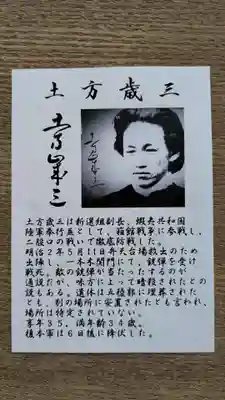 土方歳三
土方歳三は新選組副長、蝦夷共和国
陸軍奉行並として、箱館戦争に参戦し、
二股口の戦いで徹底防戦した。
明治2年5月11日弁天台場救出のため
出陣し、一本木関門にて、銃弾を受け
戦死。敵の銃弾が当たったするのが
通説だが、味方によって暗殺されたとの
説もある。遺体は五稜郭に埋葬された
とも、別の場所に安置されたとも言われ、
場所は特定されていない。
享年35。満年齢34歳。
榎本軍は6日後に降伏した。